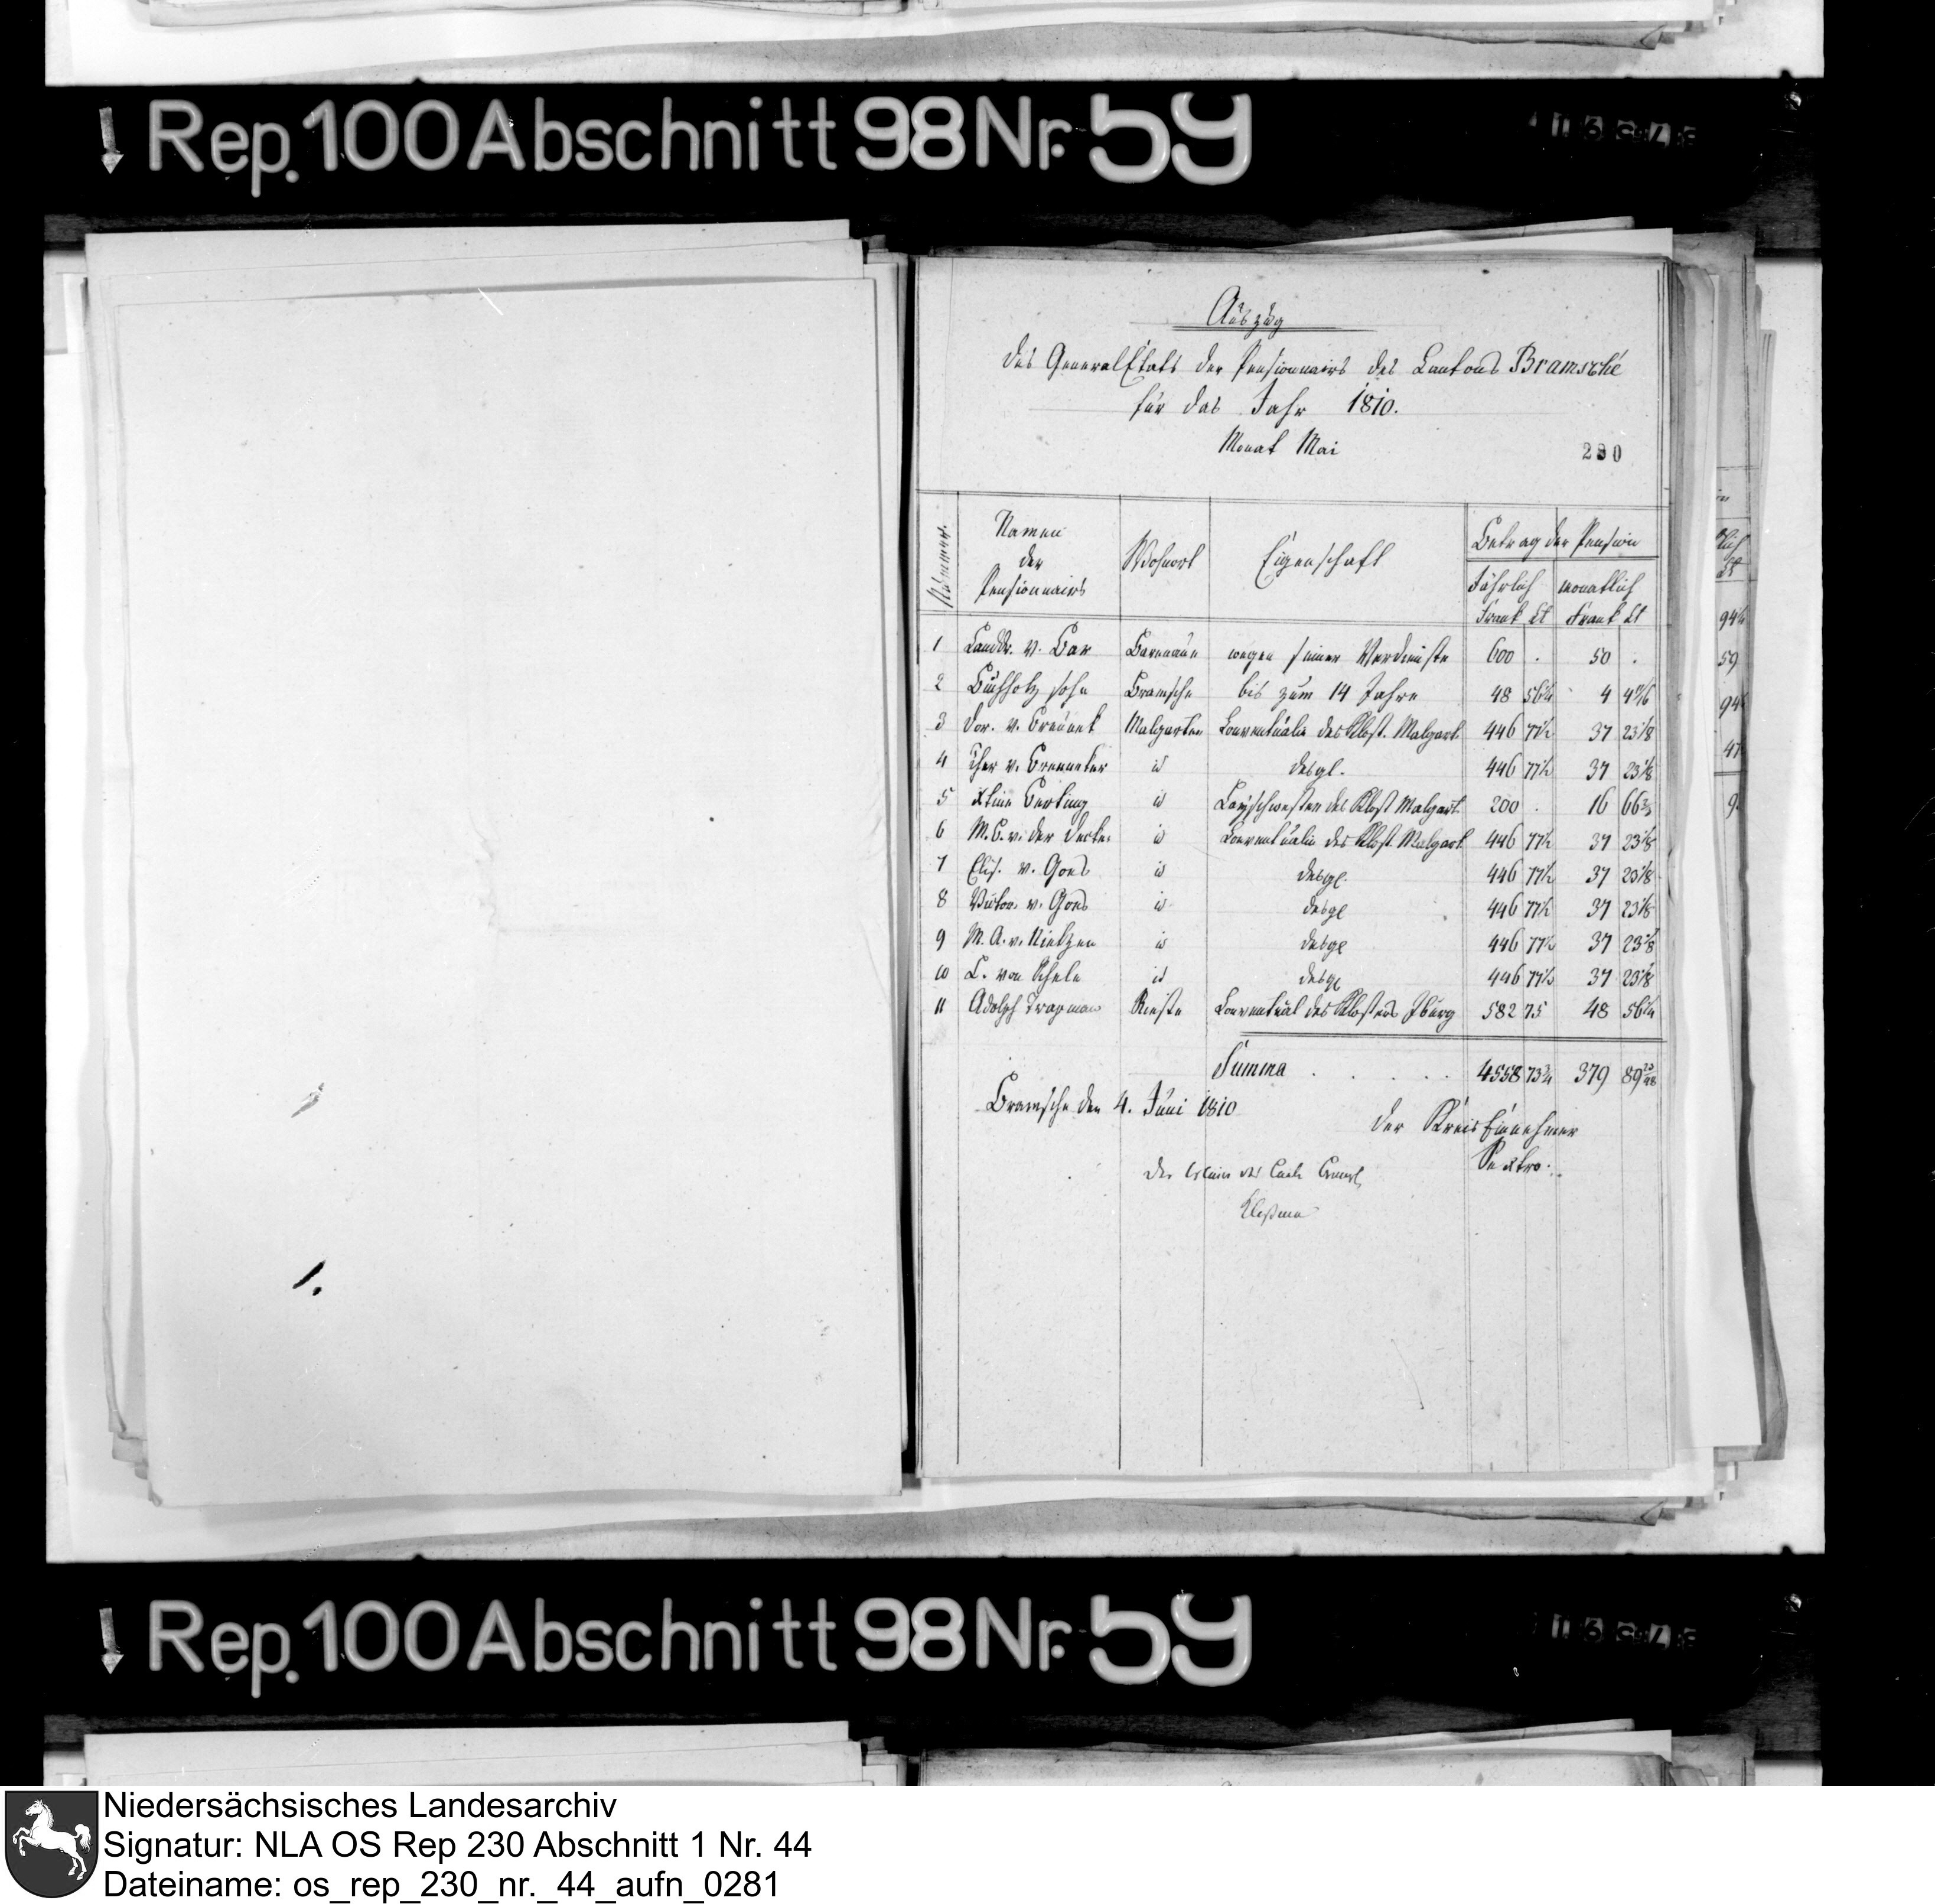 Rep. 100 Abschnitt 98 Nr. 59
Auszug
des General Etats der Pensionnairs des Cantons Bramsché
für das Jahr 1810.
Monat Mai
280
Nummer. Namen der Pensionnairs Wohnort Eigenschaft Betrag der Pension
Jährlich monatlich
Frank Ct Frank Ct
1 Landdr. v. Bar Barenaue wegen seiner Verdienste 600 . 50 .
2 Buchholz sohn Bramsche bis zum 14 Jahre 48 56 1/4 4 4 11/16
3 Dor. v. Malgarten Conventualin des Klost. Malgart. 446 77 1/2 37 23 1/8
4 Ther v. id desgl. 446 77 1/2 37 23 1/8
5 Xtine Berting id Layschwester des Klost Malgart. 200 . 16 66 2/3
6 M. C. v. der Decken id Conventualin des Klost. Malgart 446 77 1/2 37 23 1/8
7 Elis. v. Goes id desgl. 446 77 1/2 37 23 1/8
8 Victor. v. Goes id desgl 446 77 1/2 37 23 1/8
9 M. A. v. id desgl 446 77 1/2 37 23 1/8
10 C. von Schele id desgl 446 77 1/2 37 23 1/8
11 Adolph Trapman Rieste Conventual des Klosters Iburg 582 75 48 56 1/4
Summa . . . . . 4558 73 3/4 379 89 23/48
Bramsche den 4. Juni 1810
der Kreis Einnehmer
Der Maire des
Rep. 100 Abschnitt 98 Nr. 59
Niedersächsisches Landesarchiv
Signatur: NLA OS Rep 230 Abschnitt 1 Nr. 44
Dateiname: os_rep_230_nr._44_aufn_0281